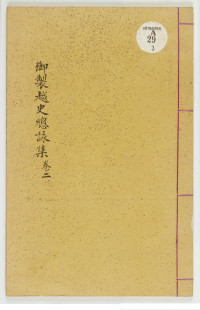 御製越史總詠集卷二
A
29
3